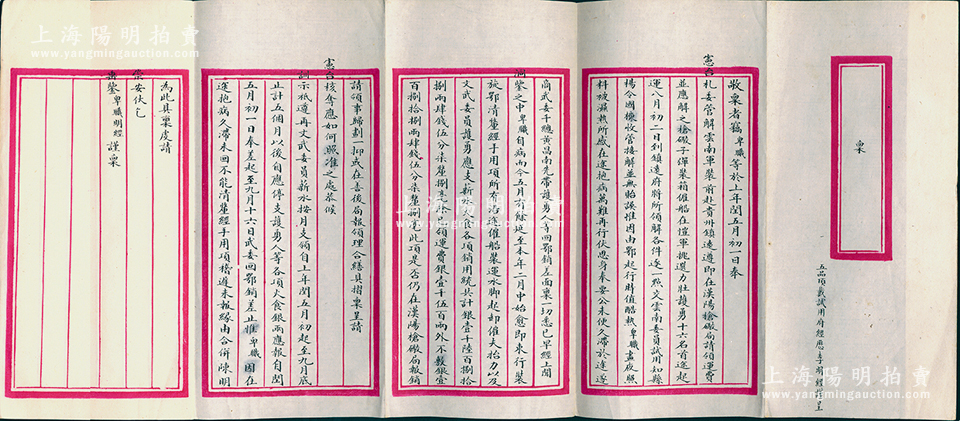 稟
五品頂戴試用府經歷李明經謹呈
敬稟者竊卑職等於上年閏五月初一日奉
憲台札委管解雲南軍裝前赴貴州鎮遠即在漢陽槍礮局請領運費
並應解之槍礮子彈裝箱僱船在愃軍挑選力壯護勇十六名首途起
運八月初二日到鎮遠府將所領解各件逐一點交雲南委員試用知縣
楊令國樑收管接解並無貽誤惟因由鄂起行時值酷熱卑職晝夜照
料被濕熱所感在途抱病萬難再行伏思身奉要公未便久滯於途遂
商武委千總黃昌南先帶護勇人等回鄂銷差面稟一切悉已早經上聞
洞鑒之中卑職自病而今五月有餘延至本年二月中始愈即束行裝
旋鄂清釐經手用項所有沿途催船裝運水脚起卸催夫抬力以及
文武委員護勇應支薪水火食各項銷用統共計銀壹千陸百捌拾
捌兩肆錢伍分柒釐捌毫除已領運費銀壹千伍百兩外不敷銀壹
百捌拾捌兩肆錢伍分柒釐捌毫此項是否仍在漢陽槍礮局報銷
請領事歸劃一抑或在善後局報領理合繕具摺稟呈請
憲台核奪應如何照准之處恭候
訓示祇遵再文武委員薪水按月支領自上年閏五月初起至九月底
止計五個月以後自應停支護勇人等各項火食銀兩應報自閏
五月初一日奉差起至九月十六日武委回鄂銷差止惟卑職因在
途抱病久滯未回不能清釐經手用項稽遲未報緣由合併陳明
為此具稟虔請
崇安伏乞
垂鑒卑職明經謹稟
上海陽明拍賣
www.yangmingauction.com
上海陽明拍賣
www.yangmingauction.com
上海陽明拍賣
www.yangmingauction.com